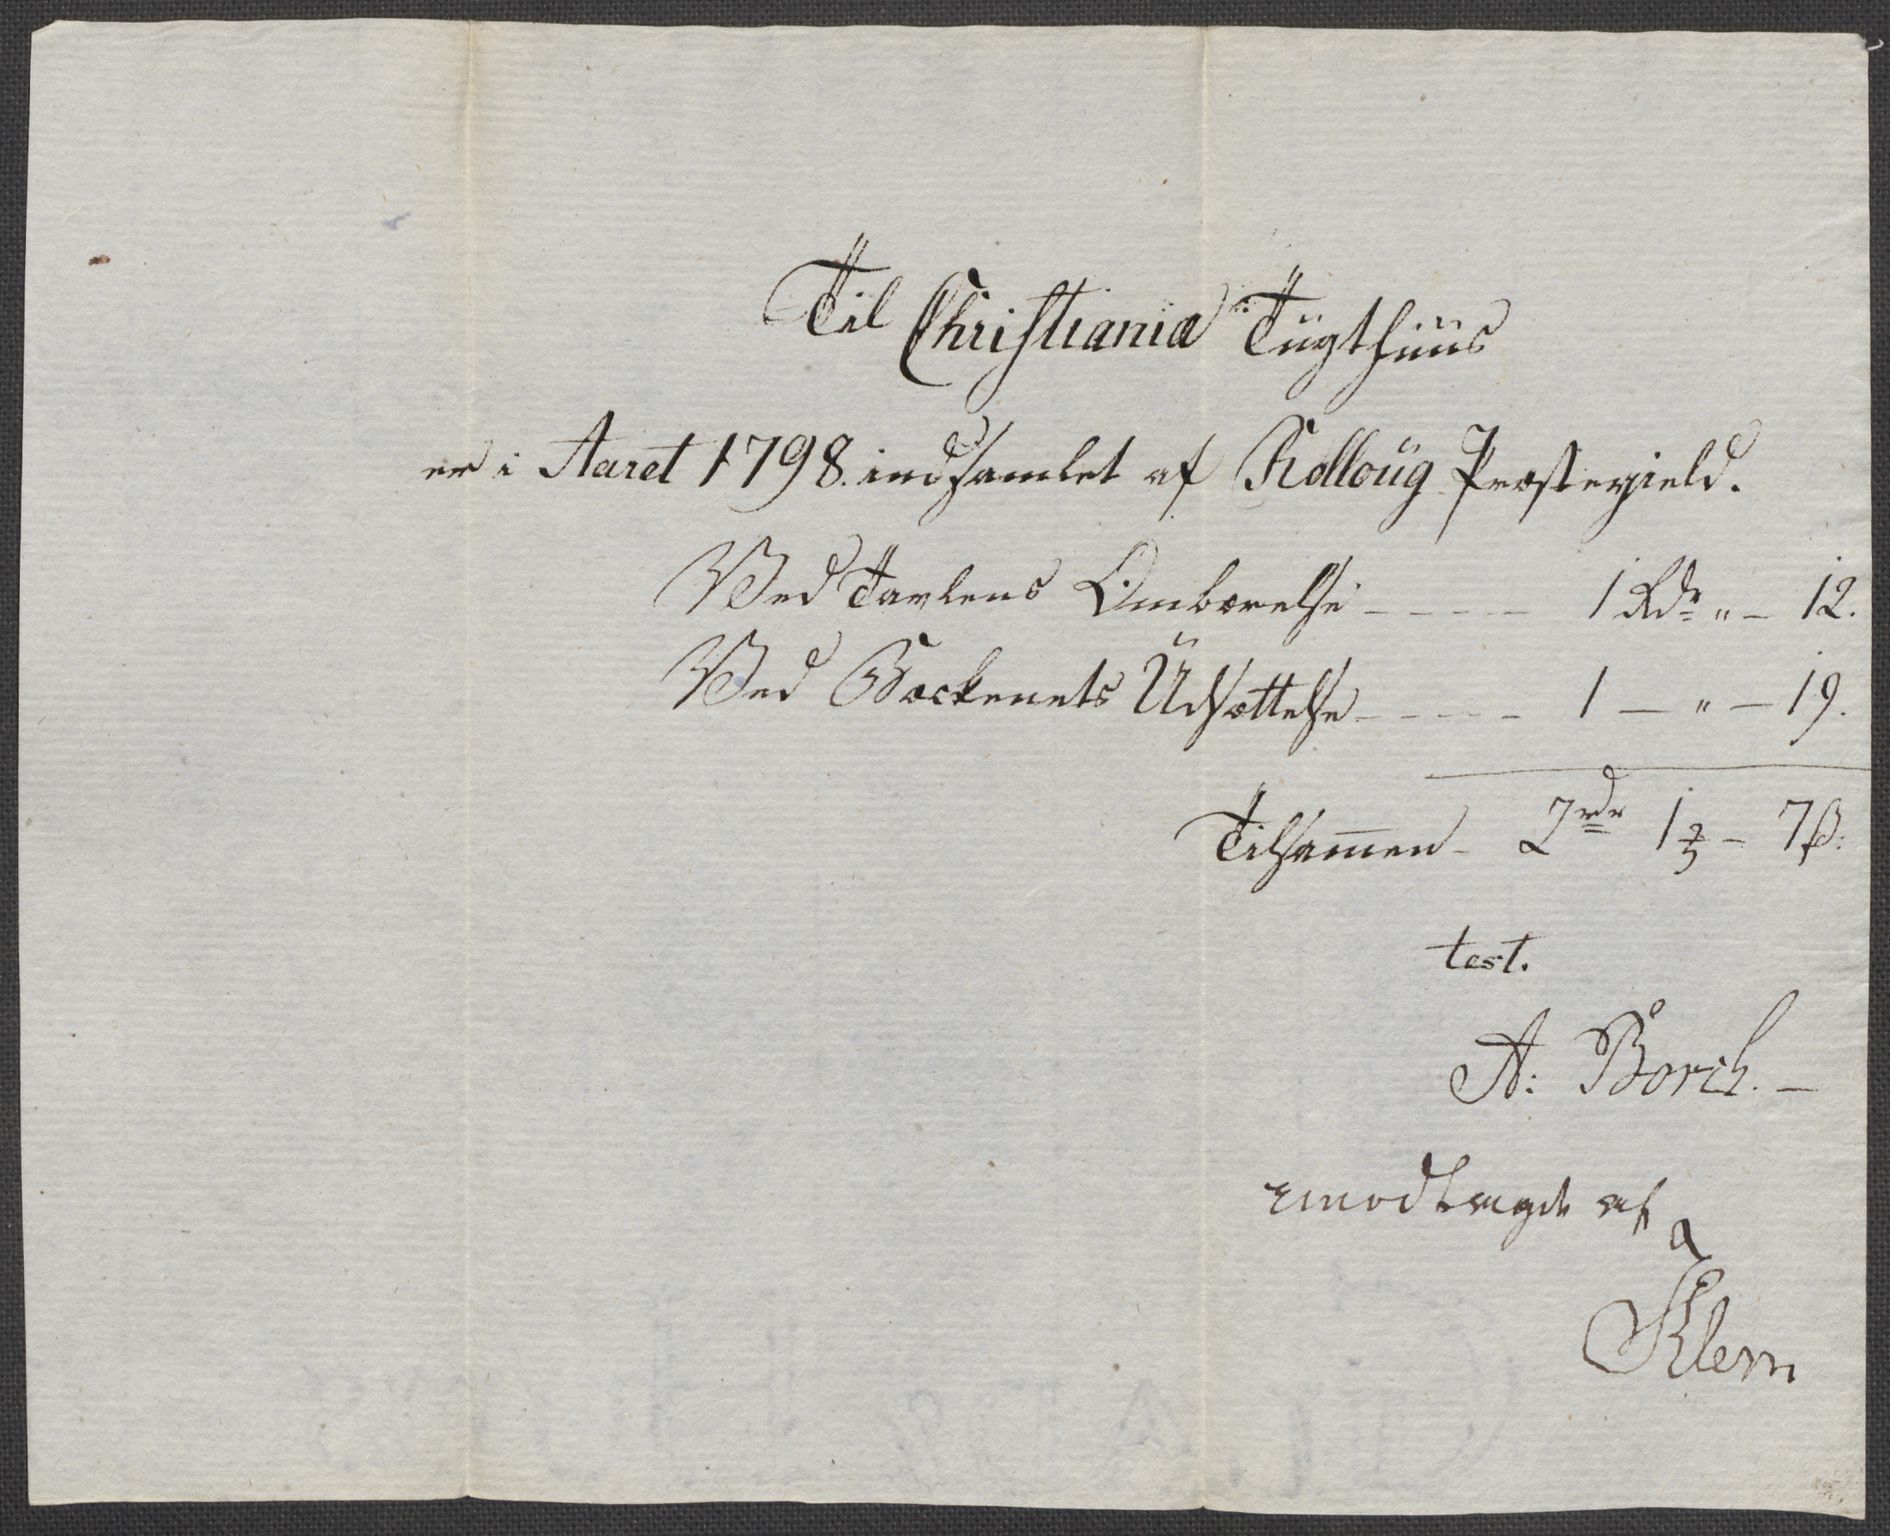 Til Christiania Tügthüüs
er i Aaret 1798. indsamlet af Kolloüg Præstegield.
Ved Tavlens Ombærelse - - - - - 1 Rdr „ - 12.
Ved Beckenets Üdsættelse - - - - - 1 - „ - 19.
Tilsam̄en - 2 rdr 1 ℥ - 7 ß:
test.
A: Borch. -
imodtagen af
Klem